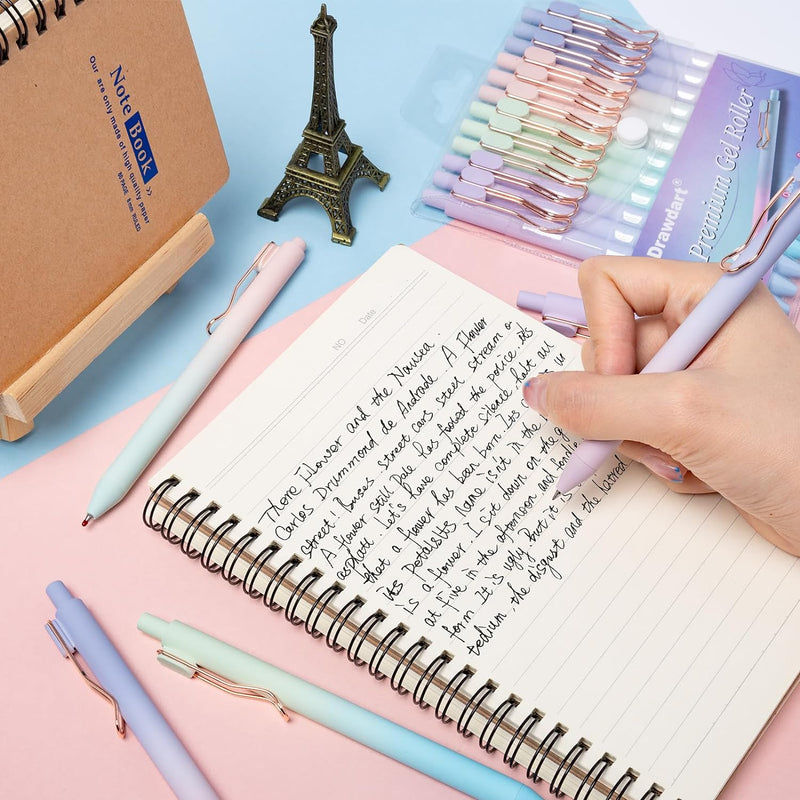 Note Book >>
Our are only made of high quality paper
80 PAGE 8mm RULED
Drawdart®
Premium Gel Roller
NO Date
There Flower and the Nausea.
Carlos Drummond de Andrade. A Flower
street! Buses street cars steel stream o
A flower still pale has fooled the police its
asphalt Let's have complete silence halt all
that a flower has been born. Its
its petalsits name isn't in the
is a flower. I sit down on the g
at five in the afternoon and fondle
form It is ugly But it is
tedium, the disgust and the hatred